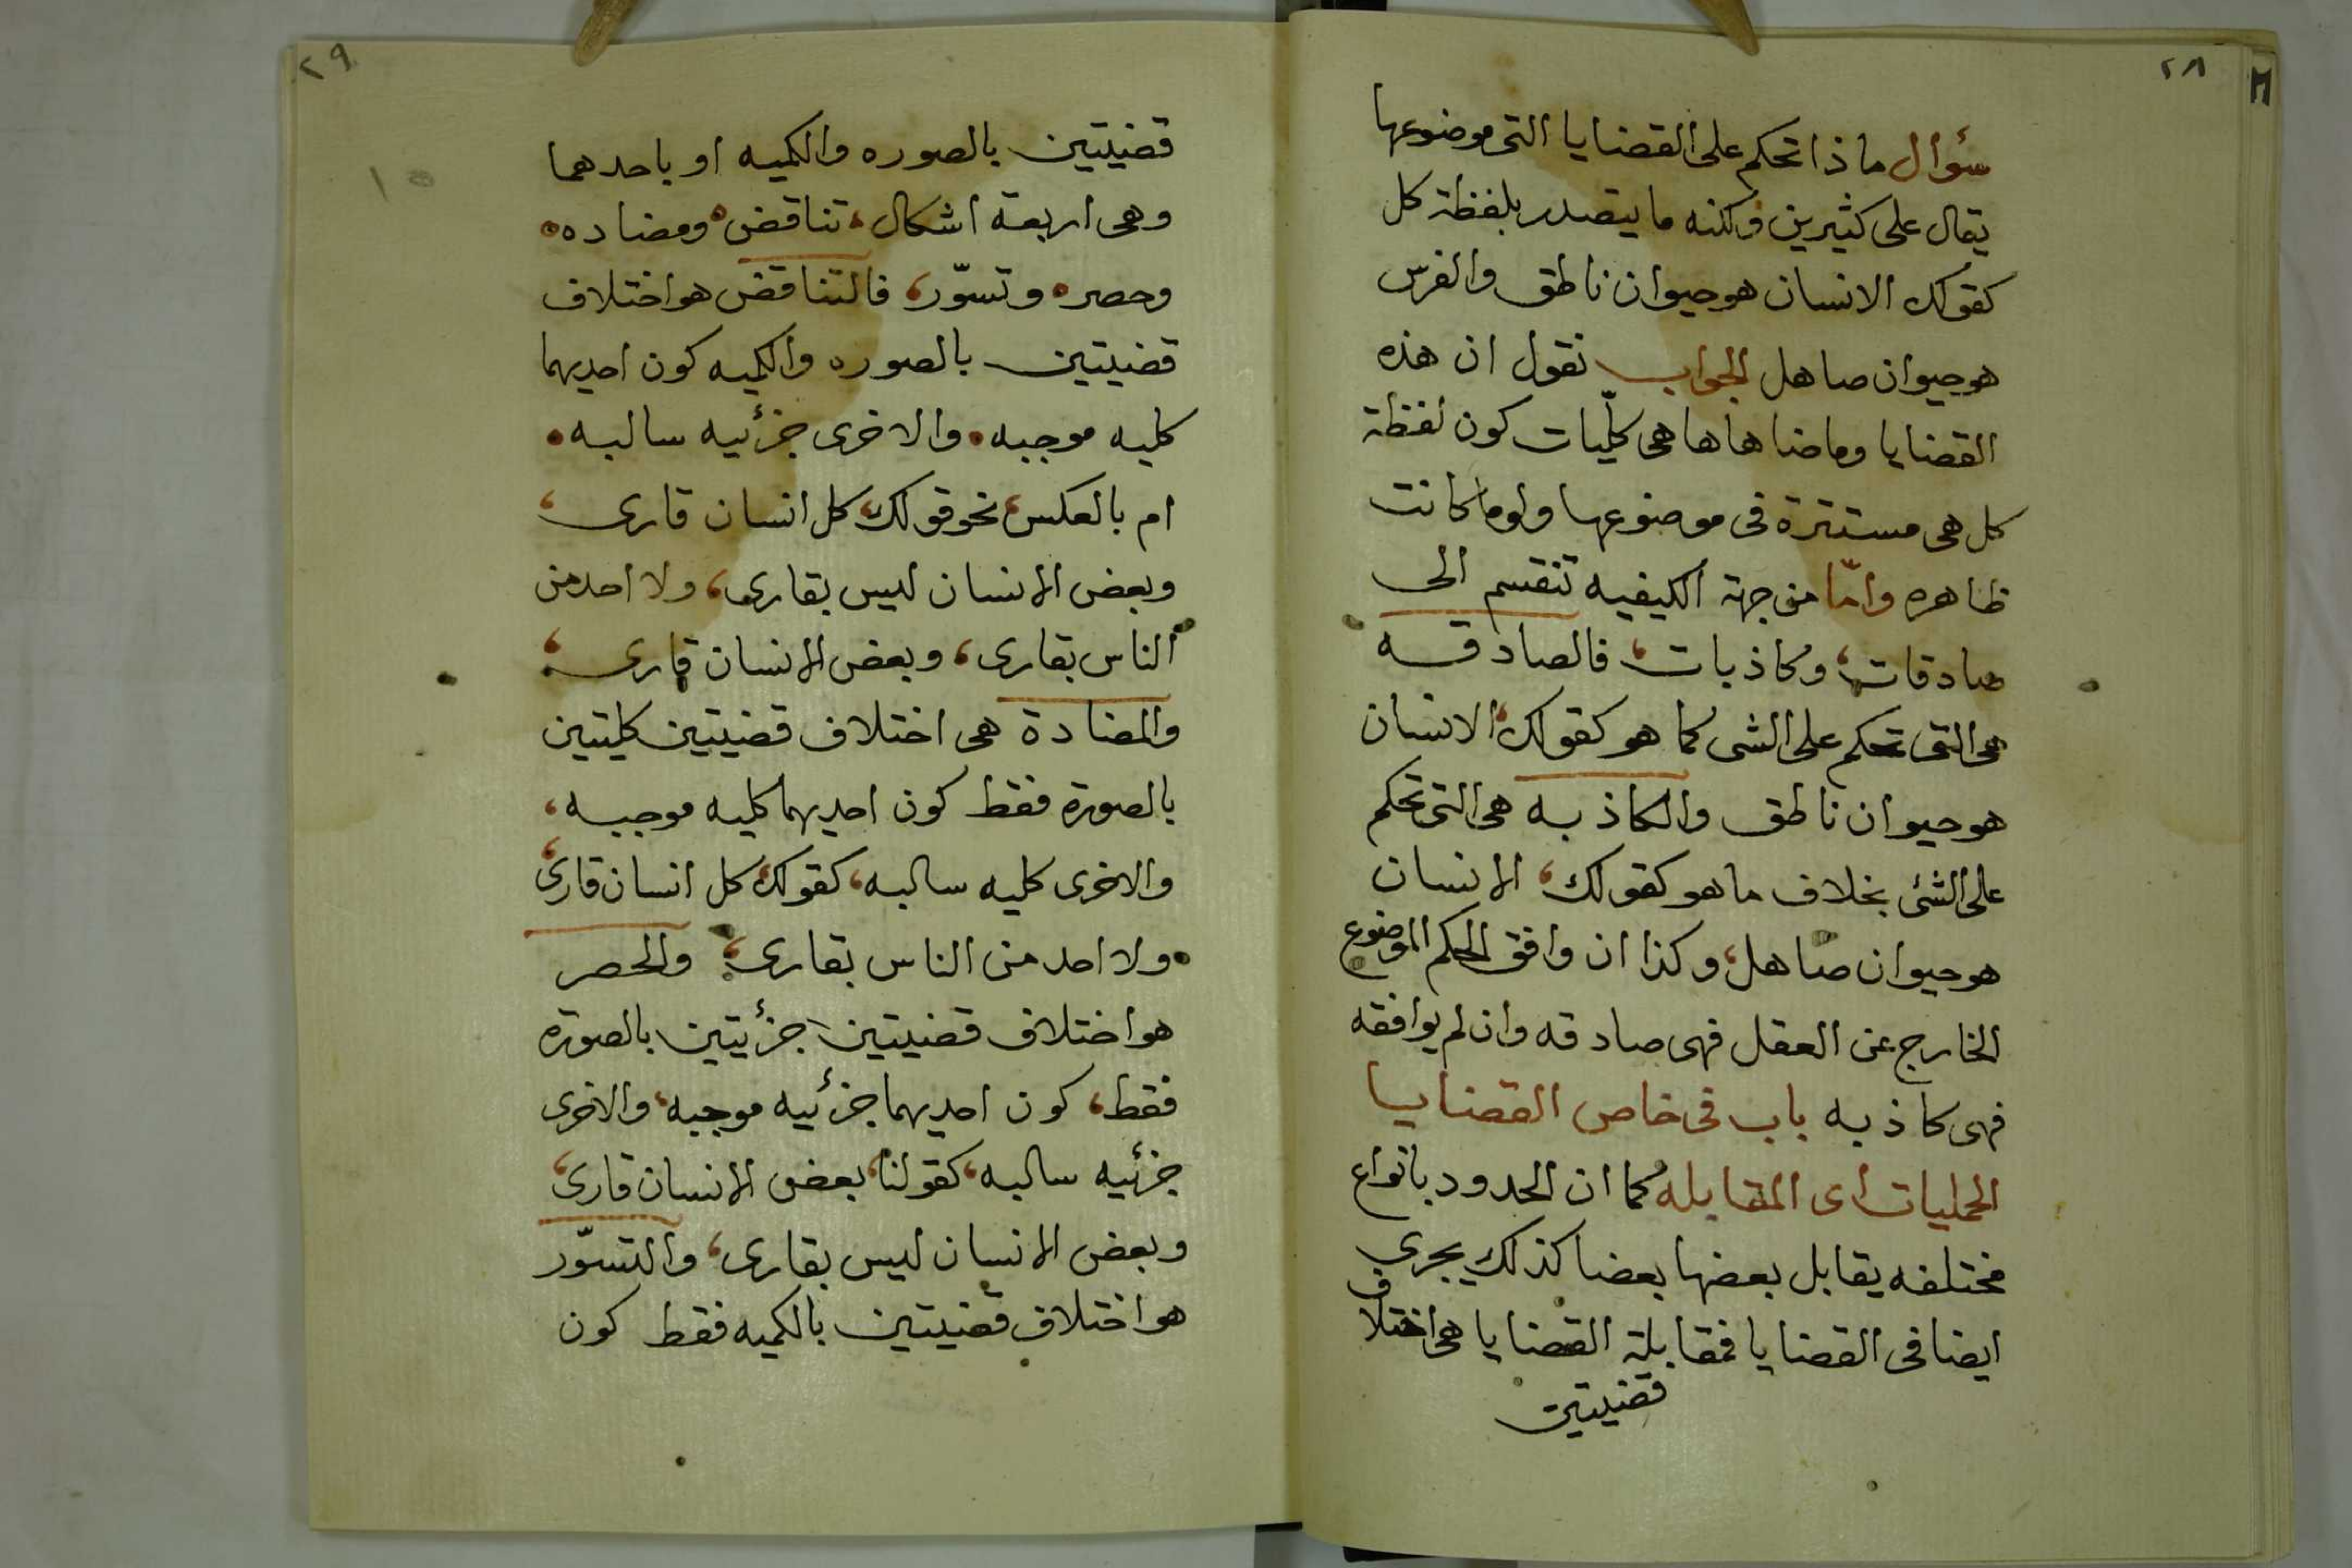 ٢٨
سئوال ماذا تحكم على القضايا التى موضوعها
يقال على كثيرين ولكنه ما يتصدر بلفظة كل
كقولك الانسان هو حيوان ناطق والفرس
هو حيوان صاهل الجواب نقول ان هذه
القضايا وما ضاهاها هى كلّيات كون لفظة
كل هى مستترة فى موضوعها ولو ما كانت
ظاهره وامّا من جهة الكيفيه تنقسم الى
صادقات، وكاذبات، فالصادقه
هى التى تحكم على الشى كما هو كقولك، الانسان
هو حيوان ناطق والكاذبه هى التى تحكم
على الشئ بخلاف ما هو كقولك، الانسان
هو حيوان صاهل، وكذا ان وافق الحكم الموضوع
الخارج عن العقل فهى صادقه وان لم يوافقه
فهى كاذبه باب فى خاص القضايا
الحمليات اى المقابله كما ان الحدود بانواع
مختلفه يقابل بعضها بعضا كذلك يجرى
ايضا فى القضايا فمقابلة القضايا هى اختلاف
قضيتين
٢٩
١٥
قضيتين بالصوره والكميه او باحدهما
وهى اربعة اشكال، تناقض، ومضاده
وحصر، وتسوّر، فالتناقض هو اختلاف
قضيتين بالصوره والكميه كون احديهما
كليه موجبه. والاخرى جزئيه سالبه.
ام بالعكس، نحو قولك، كل انسان قارى،
وبعض الانسان ليس بقارى، ولا احد من
الناس بقارى، وبعض الانسان قارى؛
والمضادة هى اختلاف قضيتين كليتين
بالصورة فقط كون احديهما كليه موجبه،
والاخرى كليه سالبه، كقولك، كل انسان قارئ،
ولا احد من الناس بقارى؛ والحصر
هو اختلاف قضيتين جزئيتين بالصورة
فقط، كون احديهما جزئيه موجبه، والاخرى
جزئيه سالبه، كقولنا، بعض الانسان قارئ،
وبعض الانسان ليس بقارى، والتسوّر
هو اختلاف قضيتين بالكميه فقط كون